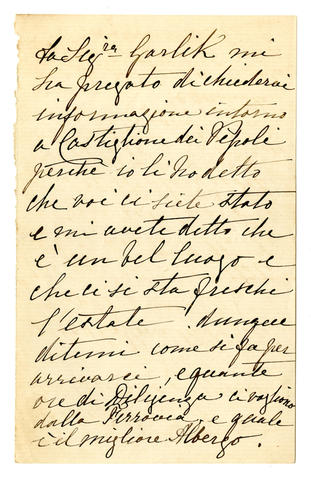 La Sigra Garlik mi
ha pregato di chiedervi
informazione intorno
a Castiglione dei Pepoli
perchè io li ho detto
che voi ci siete stato
e mi avete detto che
è un bel luogo e
che ci si sta freschi
l'estate. dunque
ditemi come si fa per
arrivarci, e quante
ore di Diligenza ci vogliono
dalla Ferrovia e quale
è il migliore Albergo.